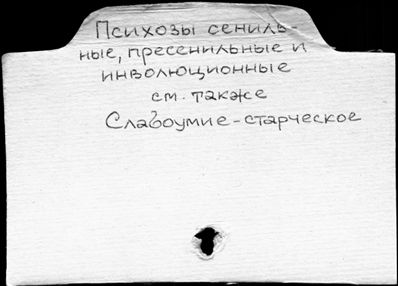 Психозы сениль-
ные, пресенильные и
инволюционные
см. также
Слабоумие-старческое